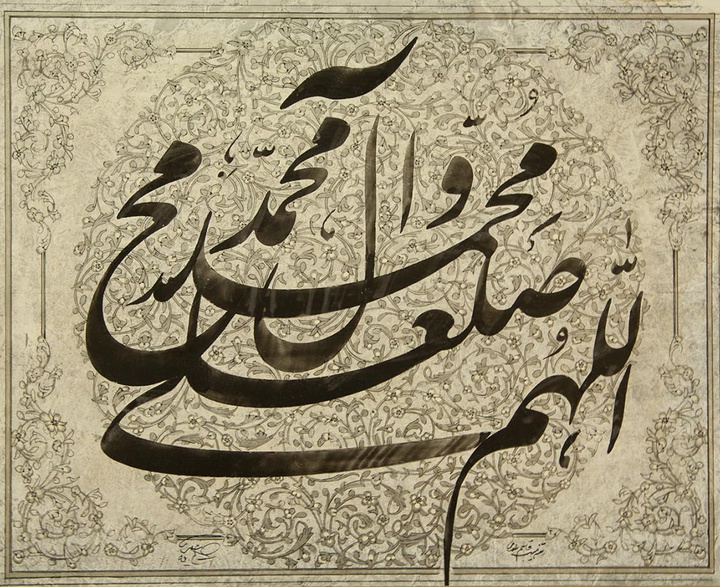 اللّهم صلّ علی محمد و آل محمّد